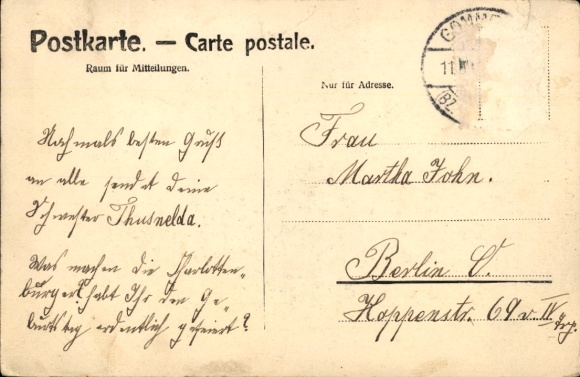 Postkarte. — Carte postale.
Raum für Mitteilungen.
Nur für Adresse.
GOMM
11
BZ.
Nochmals besten Gruß
an alle sendet Deine
Schwester Thusnelda.
Was machen die Charlotten-
burger? habt Ihr den Ge-
burtstag ordentlich gefeiert?
Frau
Martha John.
Berlin O.
Koppenstr. 69 v. IV